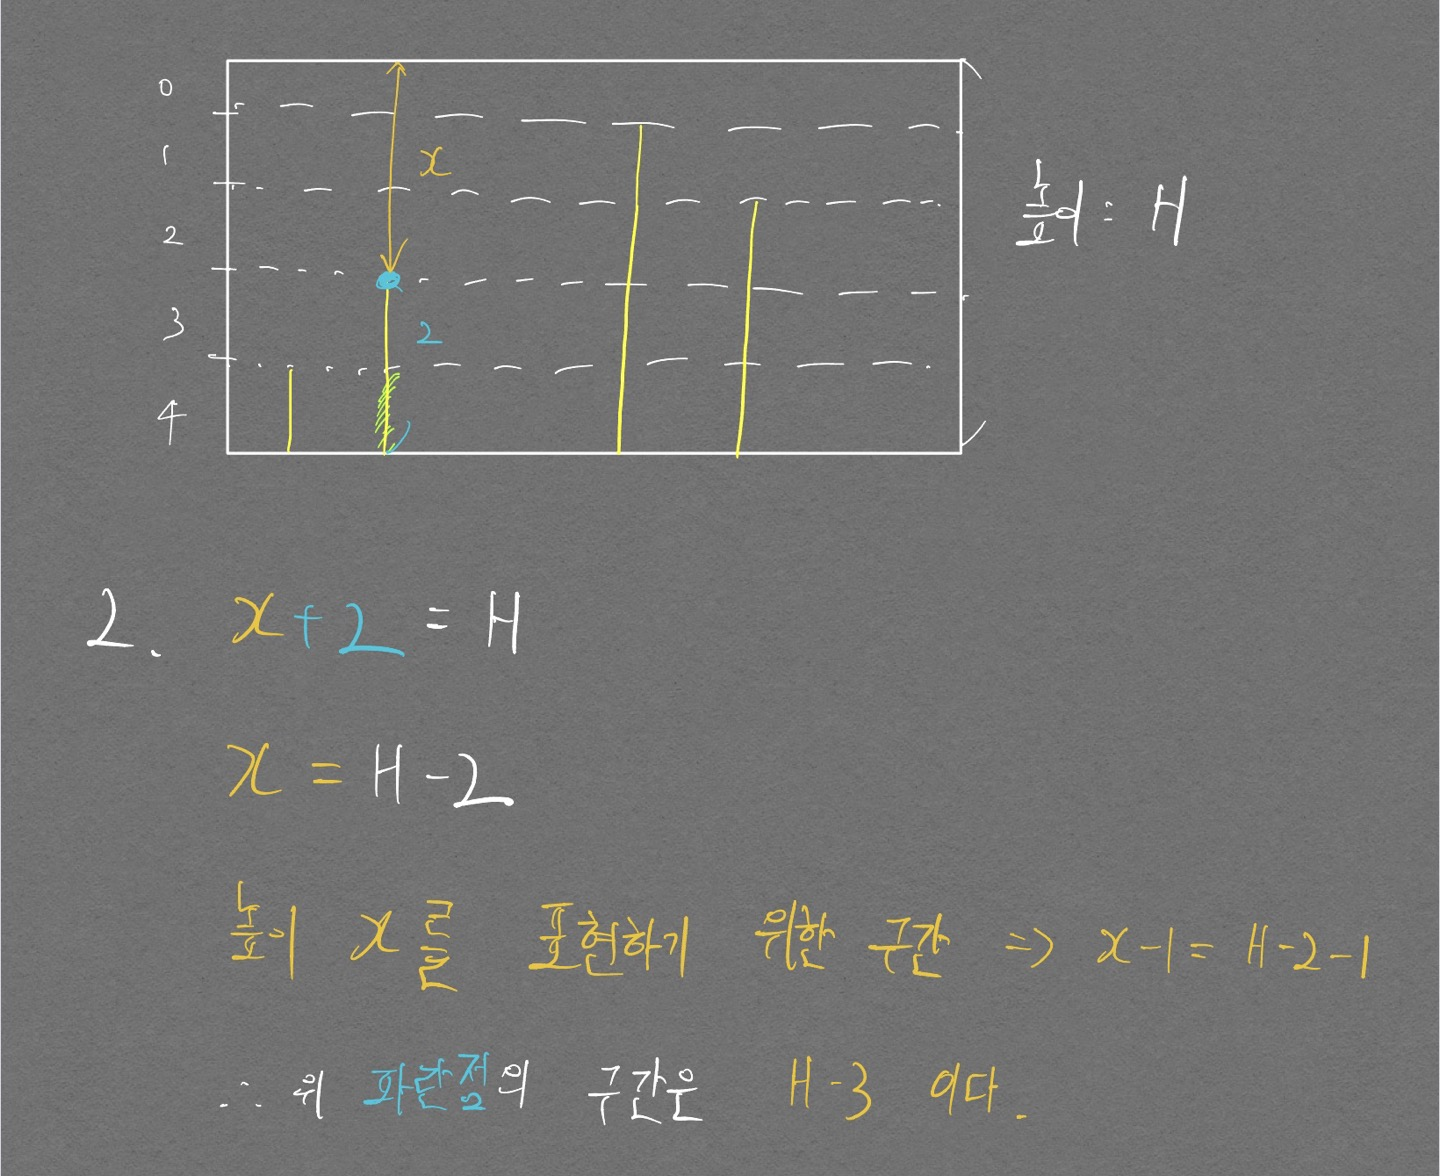 0
1
x
2
높이 : H
3
2
4
2. x + 2 = H
x = H - 2
높이 x를 표현하기 위한 구간 => x - 1 = H - 2 - 1
∴ 위 파란점의 구간은 H - 3 이다.